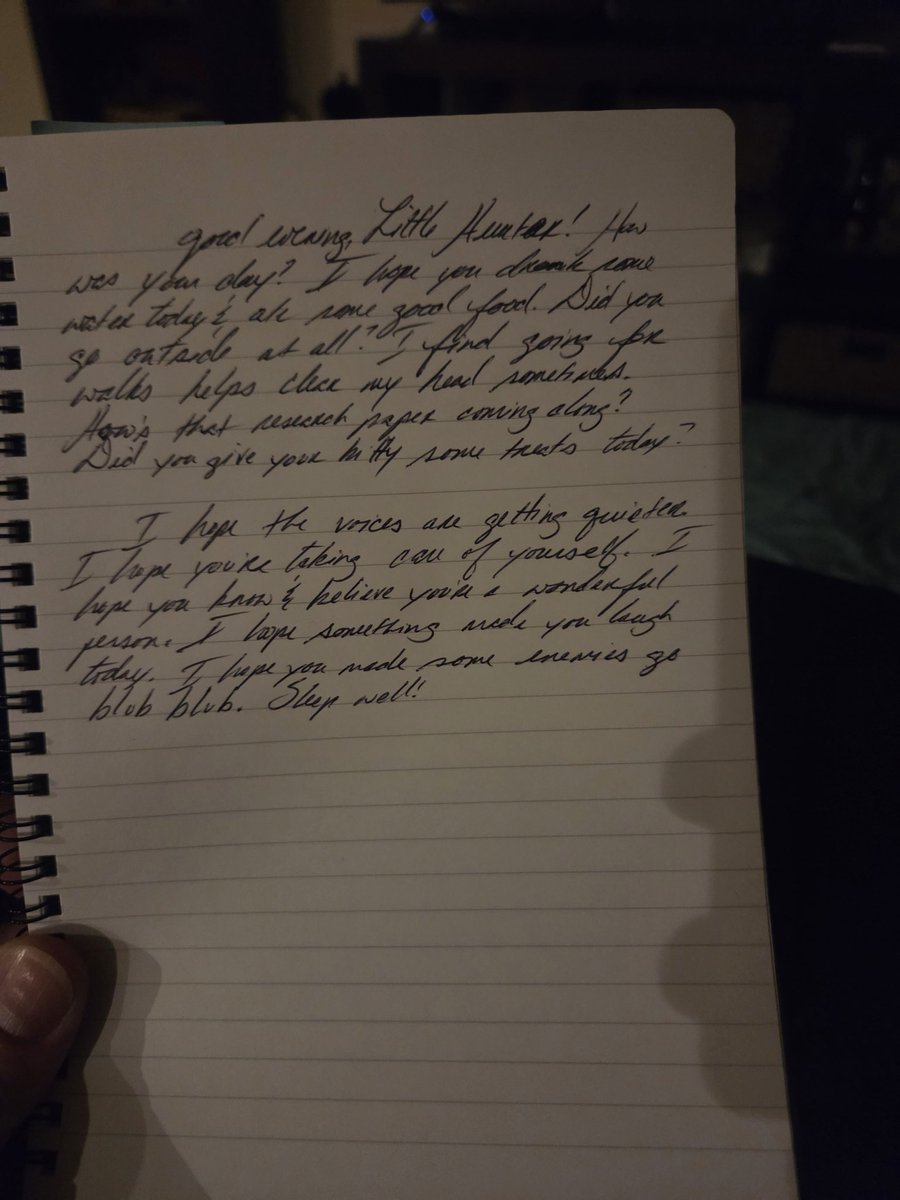 good evening, Little Hunter! How
was your day? I hope you drank some
water today & ate some good food. Did you
go outside at all? I find going for
walks helps clear my head sometimes.
How's that research paper coming along?
Did you give your kitty some treats today?
I hope the voices are getting quieter.
I hope you're taking care of yourself. I
hope you know & believe you're a wonderful
person. I hope something made you laugh
today. I hope you made some enemies go
blub blub. Sleep well!